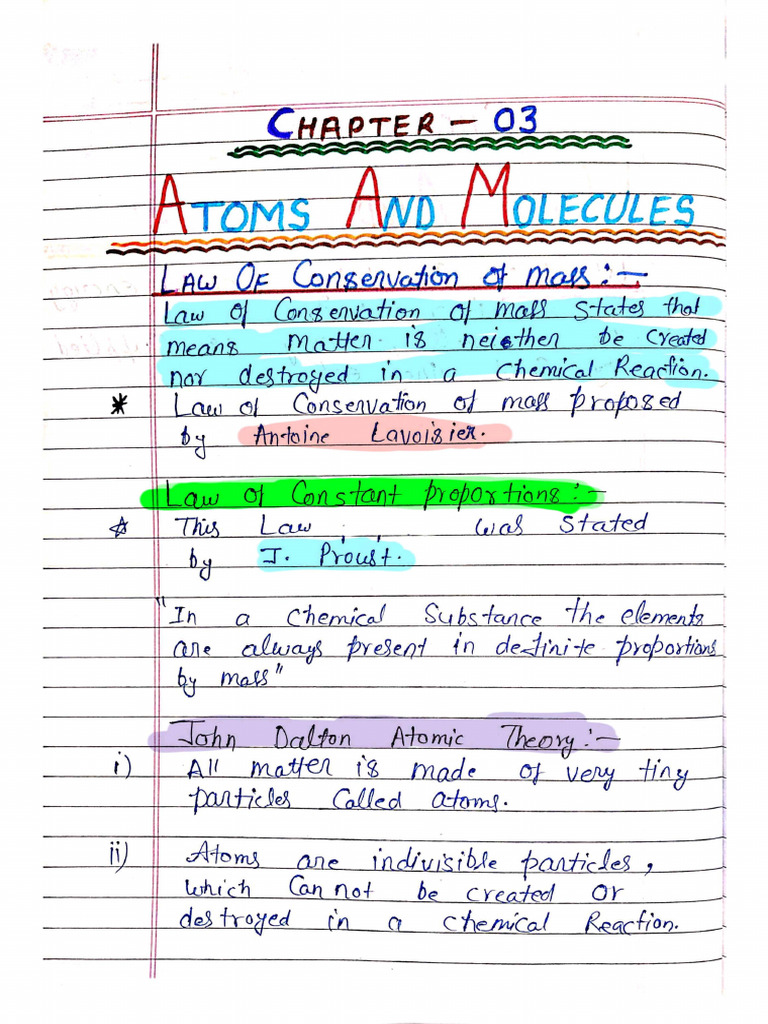 CHAPTER - 03
ATOMS AND MOLECULES
LAW OF Conservation of mass :-
Law of Conservation of mass states that
means matter is neither be created
nor destroyed in a Chemical Reaction.
* Law of Conservation of mass proposed
by Antoine Lavoisier.
Law of Constant proportions :-
☆ This Law . . was stated
by J. Proust.
"In a chemical Substance the elements
are always present in definite proportions
by mass"
John Dalton Atomic Theory :-
i) All matter is made of very tiny
particles Called atoms.
ii) Atoms are indivisible particles,
which Can not be created or
destroyed in a chemical Reaction.